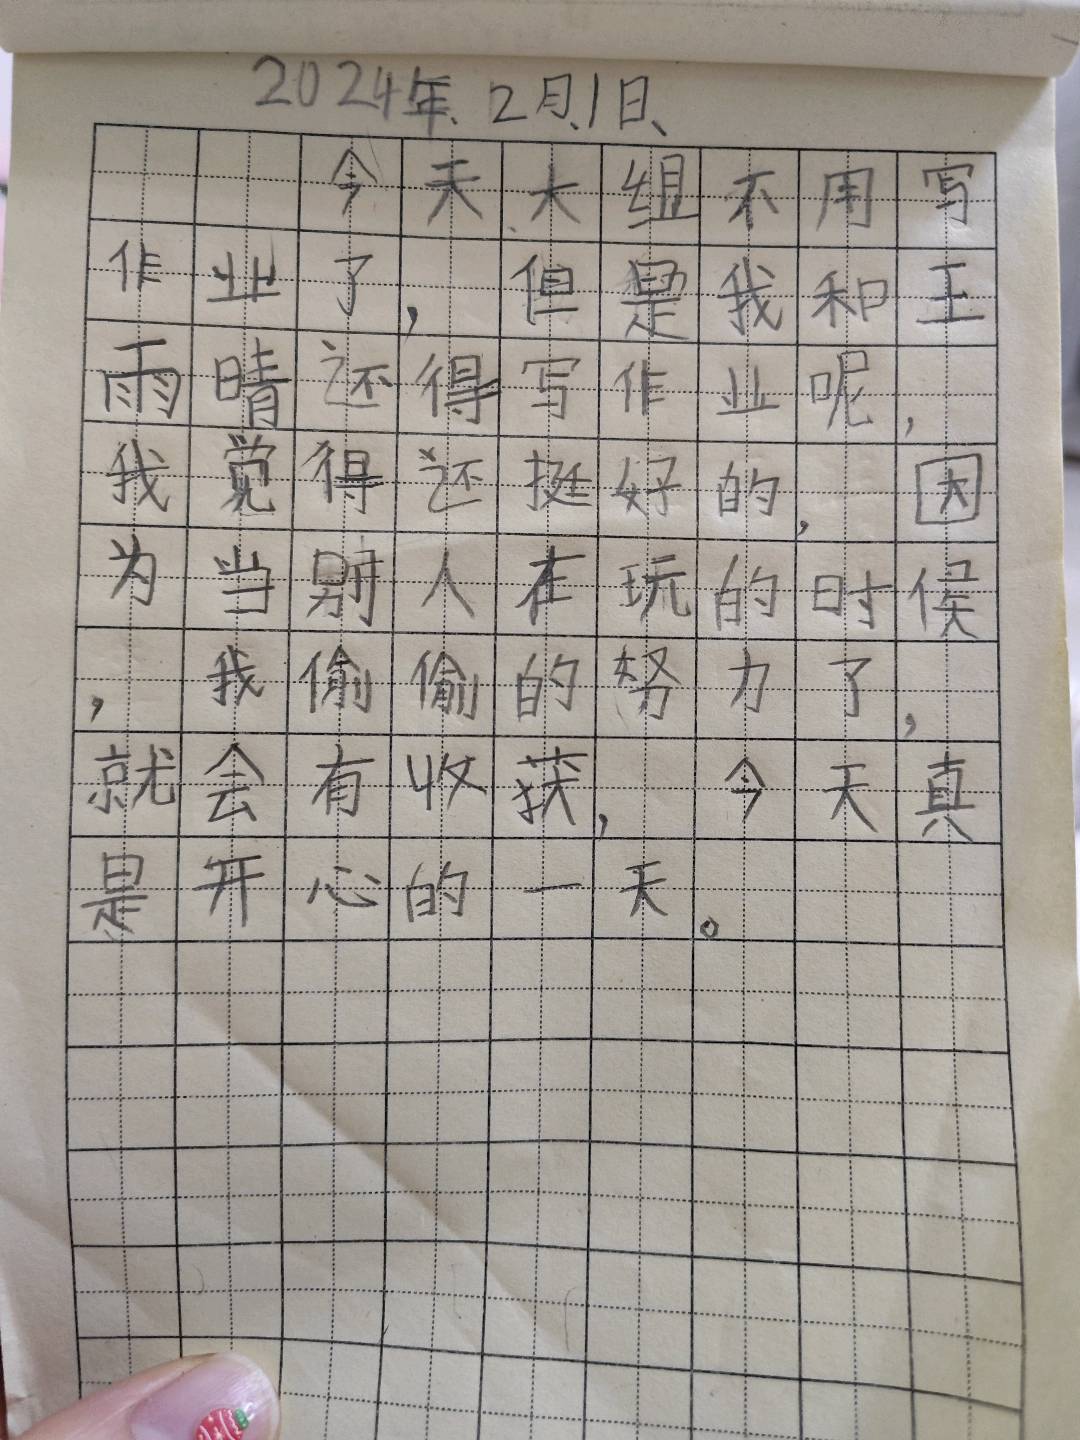 2024年、2月、1日、
今天大组不用写
作业了，但是我和王
雨晴还得写作业呢，
我觉得还挺好的，因
为当别人在玩的时候
，我偷偷的努力了，
就会有收获，今天真
是开心的一天。